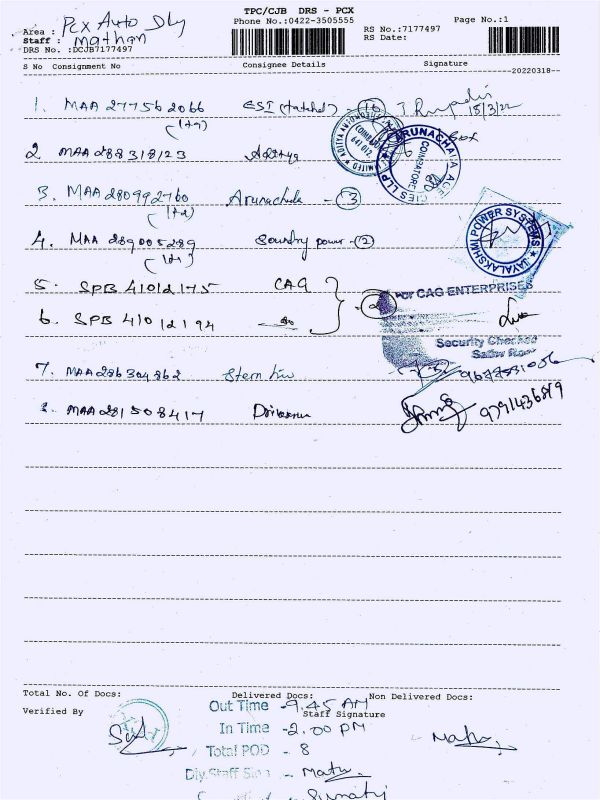 TPC/CJB DRS - PCX
Phone No.:0422-3505555
Page No.:1
Area : Pcx Auto Dly
Staff : Mathan
DRS No. :DCJB7177497
RS No.:7177497
RS Date:
S No Consignment No Consignee Details Signature
20220318
1. MAA 277562066 ESI 16 15/3/22
(1+9)
2 MAA 288318123 Aditya
ARUNACHALA AGENCIES LLP
COIMBATORE
3. MAA 280992760 Arunachala - 3
4. MAA 289005289 power - 2
JAYALAKSHMI POWER SYSTEMS
5. SPB 41012175 CAG
2
For CAG ENTERPRISES
6. SPB 41012194
Security Checked
7. MAA 286304862
8. MAA 281508417 9791436819
Total No. Of Docs: Delivered Docs: Non Delivered Docs:
Verified By
Staff Signature
Out Time - 9.45 AM
In Time - 2.00 PM
Total POD - 8
Dly.Staff Sign -